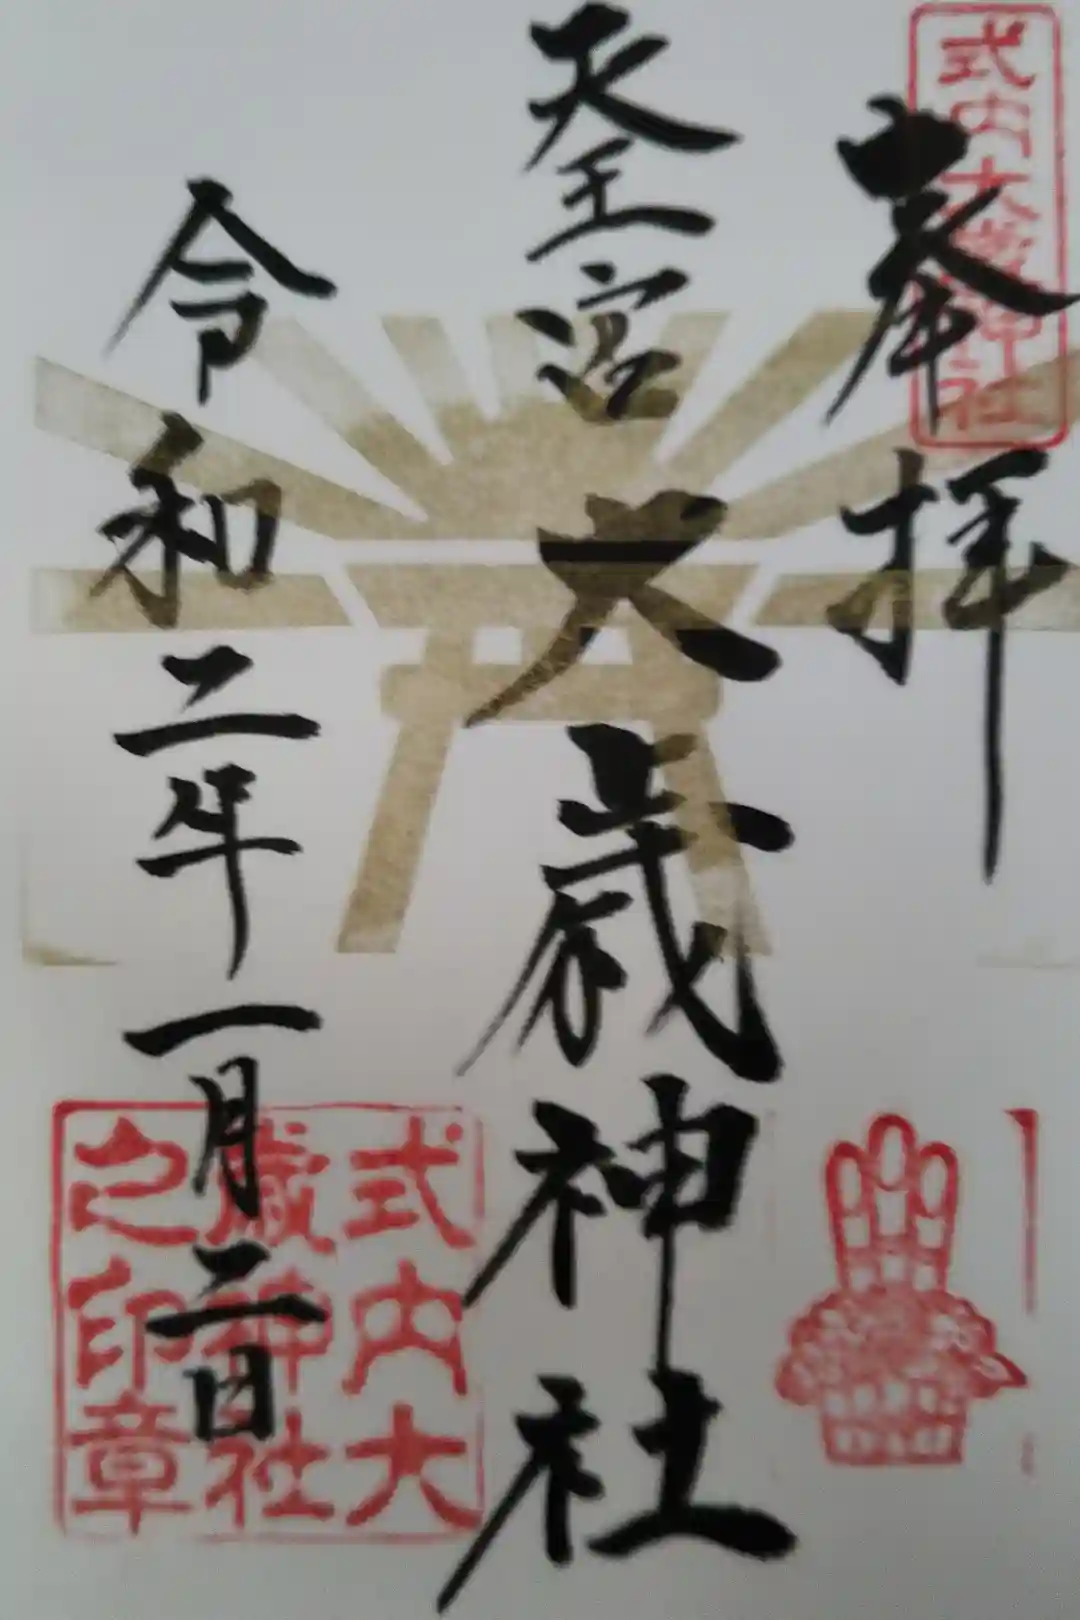 式内大歳神社
奉拝
天王宮 大歳神社
令和二年一月二日
式内大
歳神社
之印章